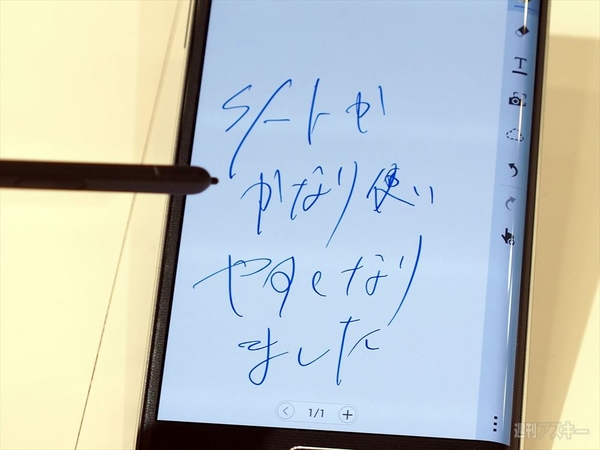 シートが
かなり使い
やすくなり
ました
T
1/1
週刊アスキー